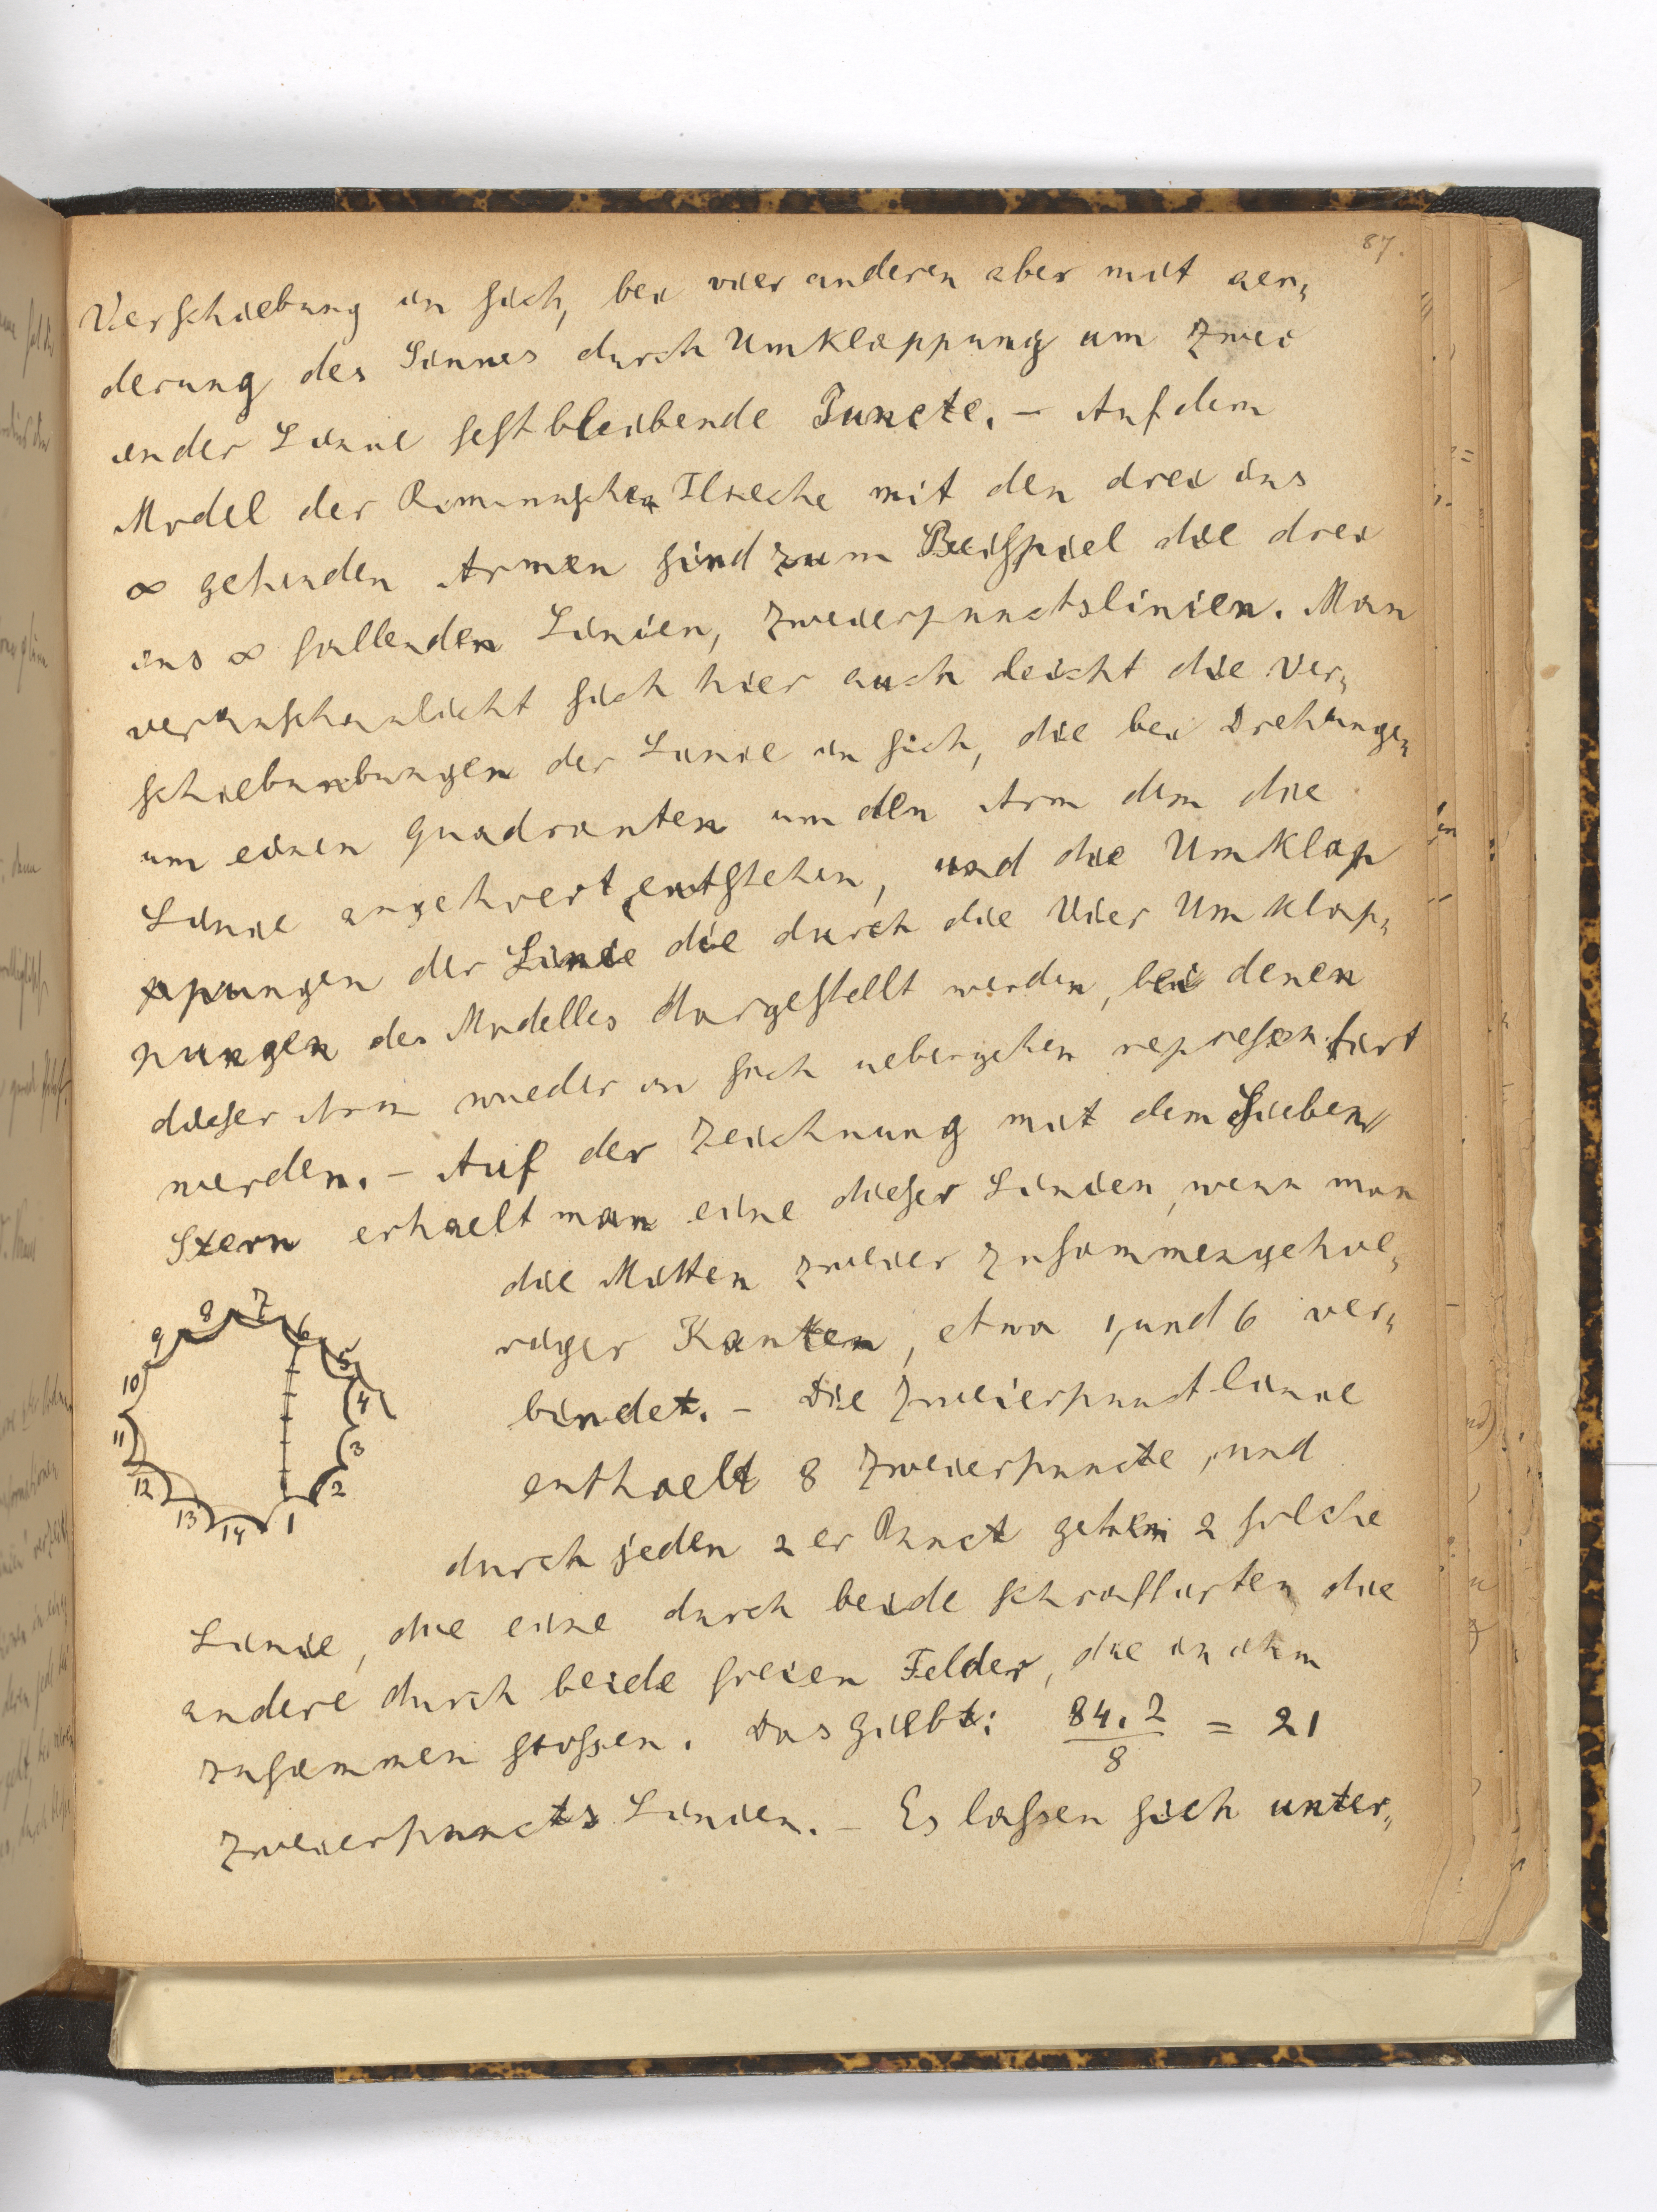 87.
Verschiebung in sich, bei vier anderen aber mit aen„
derung des Sinnes durch Umklappung um zwei
in der Linie festbleibende Puncte. – Auf dem
Model der Rimannschen Flaeche mit den drei ins
∞ gehenden Armen sind zum Beispiel die drei
ins ∞ fallenden Linien, Zweierpunctslinien. Man
veranschaulicht sich hier auch leicht die Ver„
schiebunbungen der Linie in sich, die bei Drehungen
um einen Quadranten um den Arm dem die
Linie angehoert, entstehen, und die Umklap
ppungen der Linie die durch die Vier Umklap„
pungen des Modelles dargestellt werden, bei denen
dieser Arm wieder in sich uebergehen repraesentirt
werden. – Auf der Zeichnung mit dem Sieben„
Stern erhaelt man eine dieser Linien, wenn man
die Mitten zweier zusammengehoe„
riger Kanten, etwa 1, und 6 ver„
bindet. – Die Zweierpunctlinie
enthaelt 8 Zweierpuncte, und
durch jeden 2er Punct gehen 2 solche
Linie, die eine durch beide schraffirten die
andere durch beide freien Felder, die in ihm
zusammen stossen. Das giebt: 84.2/8 = 21
Zweierpuncts Linien. – Es lassen sich unter„
1 2 3 4 5 6 7 8 9 10 11 12 13 14